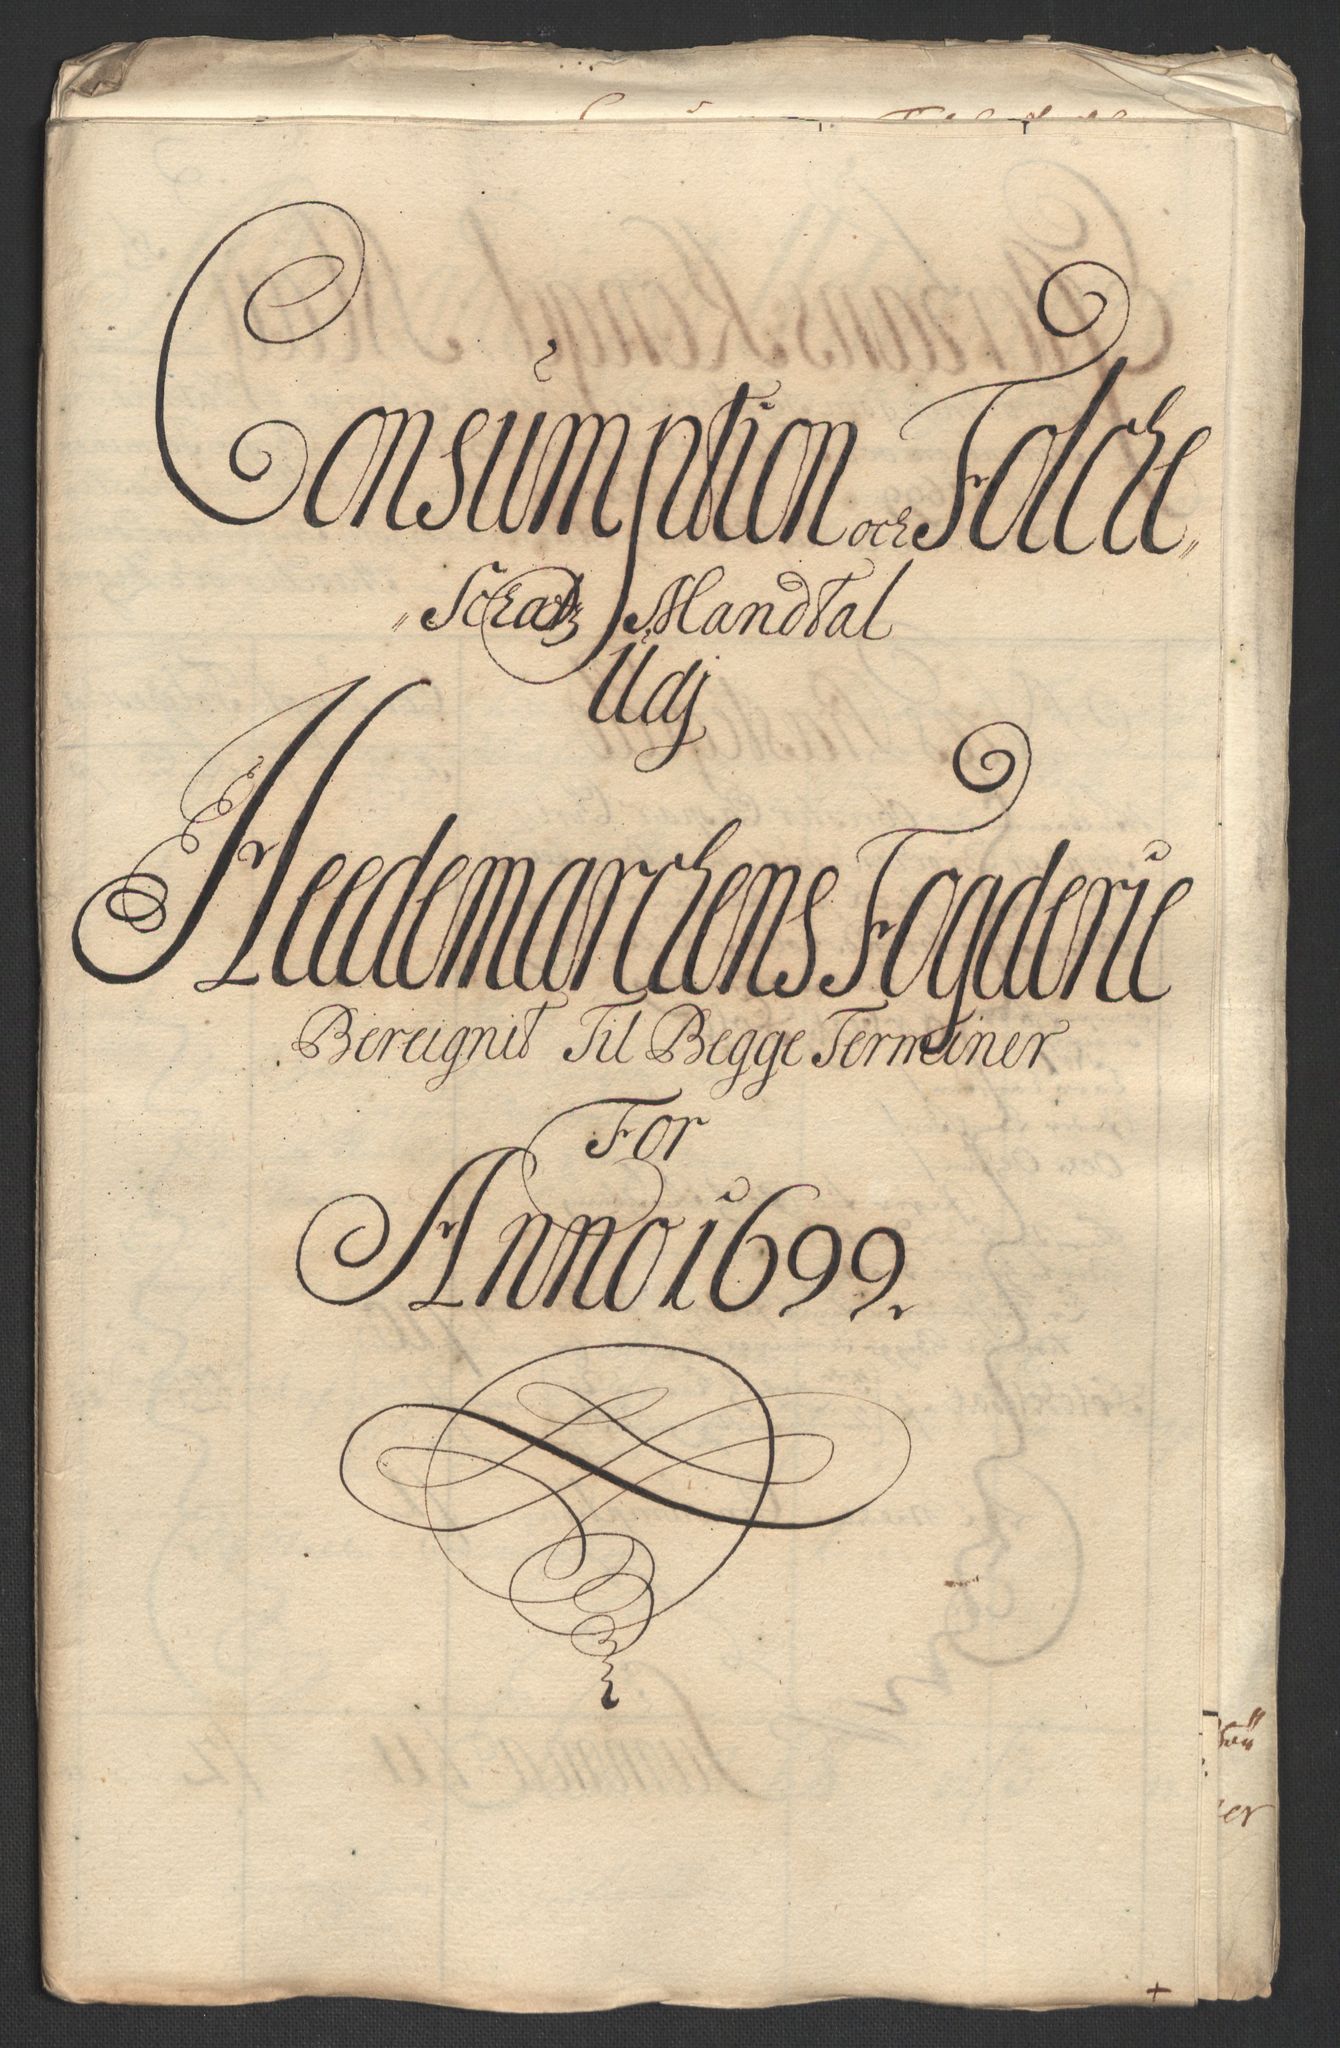 Consumption och Folche„
„Schatz Mandtal
Udj
Heedemarchens Fogderie
Bereignit Til Begge Terminer
For
Anno 1699